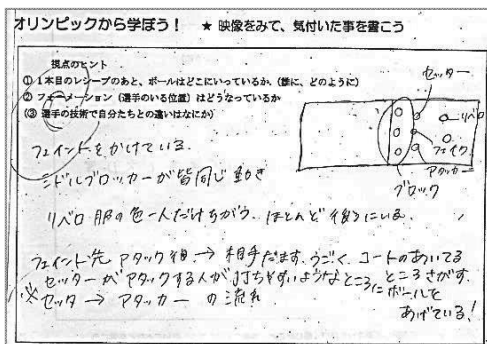 オリンピックから学ぼう！ ★ 映像をみて、気付いた事を書こう
視点のヒント
① 1本目のレシーブのあと、ボールはどこにいっているか、(誰に、どのように)
② フォーメーション (選手のいる位置) はどうなっているか
(③ 選手の技術で自分たちとの違いはなにか)
セッター
リベロ
フェイク
アタッカー
ブロック
フェイントをかけている。
ミドルブロッカーが皆同じ動き
リベロ 服の色一人だけちがう。ほとんど後ろにいる。
フェイント先 アタック後 → 相手だます。うごく。コートのあいてるところさがす。
セッターがアタックする人が打ちやすいようなところにボールをあげている！
※セッター → アタッカー の流れ